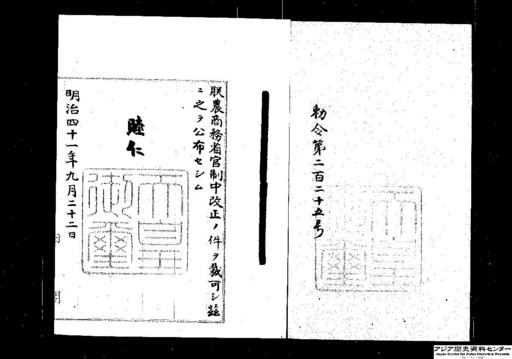 勅令第二百二十五号
朕農商務省官制中改正ノ件ヲ裁可シ茲
ニ之ヲ公布セシム
睦仁
天皇御璽
明治四十一年九月二十二日
内閣
アジア歴史資料センター
Japan Center for Asian Historical Records